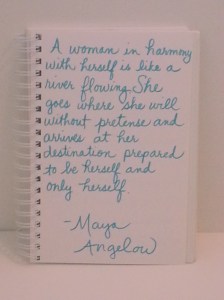 A woman in harmony
with herself is like a
river flowing. She
goes where she will
without pretense and
arrives at her
destination prepared
to be herself and
only herself.
-Maya
Angelow